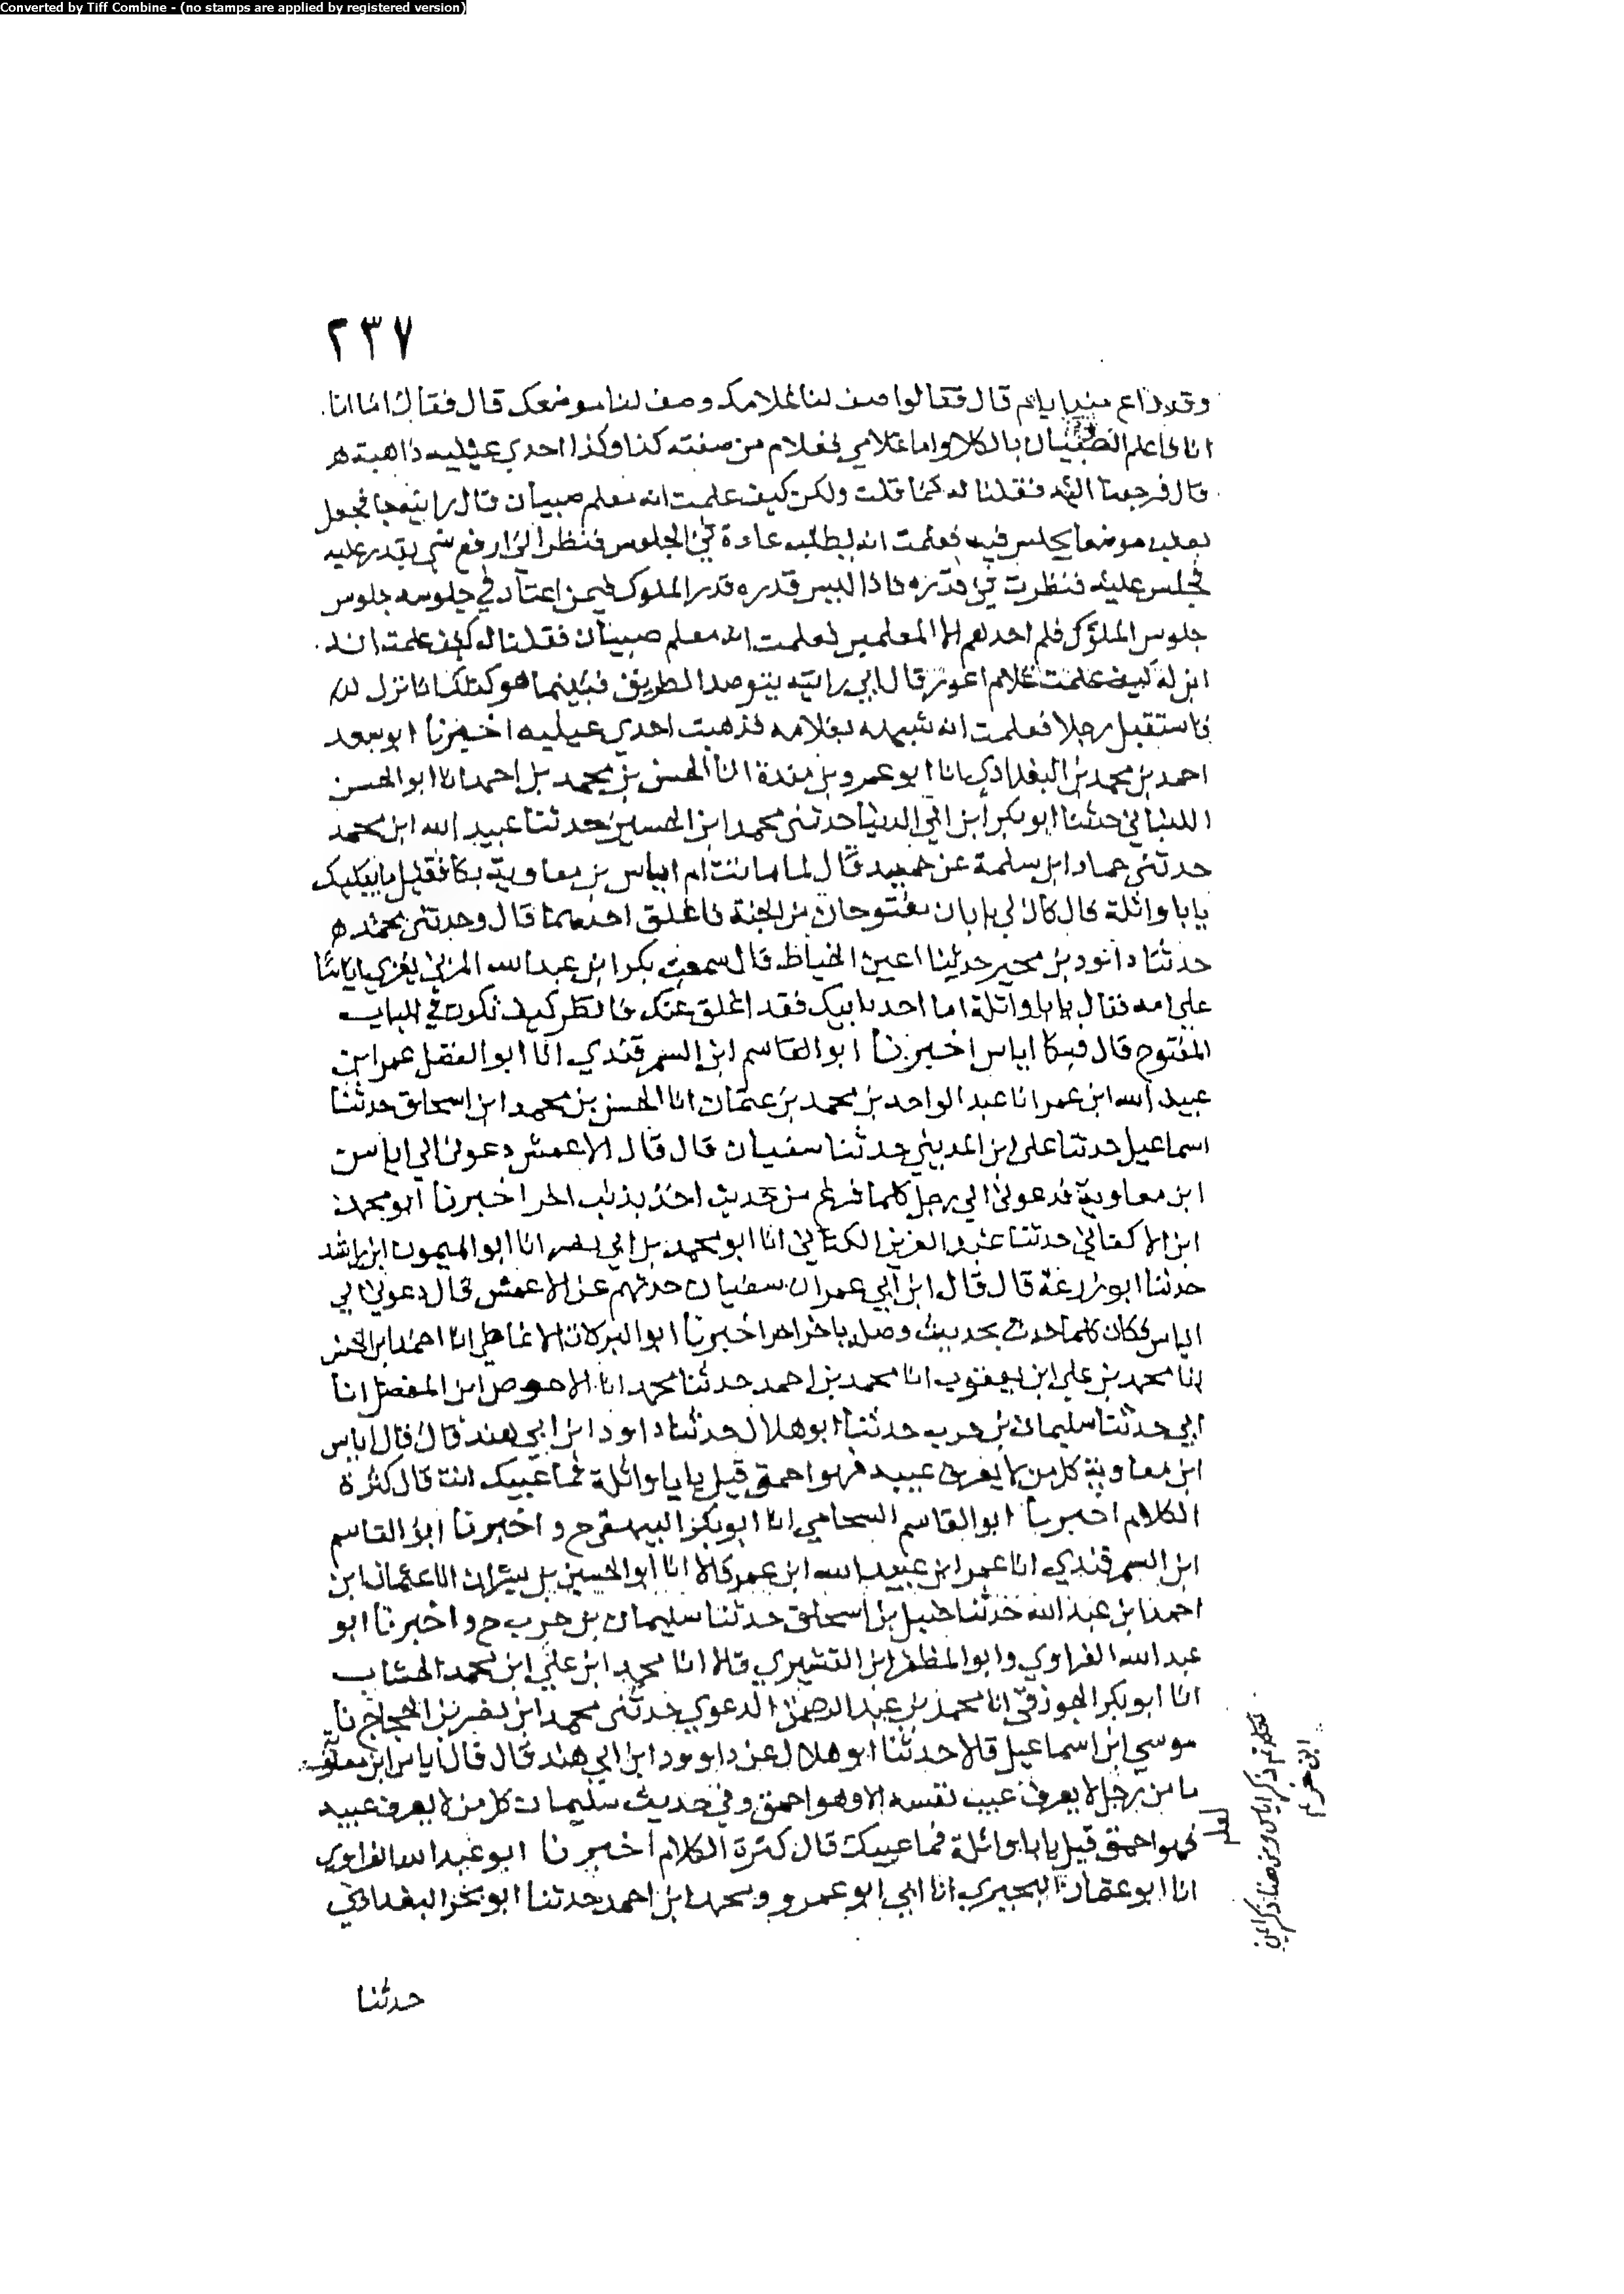 Converted by Tiff Combine - (no stamps are applied by registered version)
٢٣٧
وقد زاع منذ ايام قال فقالوا صف لنا غلامك وصف لنا موضعك قال فقال اما انا
انا فاعلم الصبيان بالكلا واما غلامي فغلام من صفته كذا وكذا احدي عينيه ذاهبة ه
قال فرجعنا اليه فقلنا له كما قلت ولكن كيف علمت انه معلم صبيان قال رايته جا فجعل
يطلب موضعا يجلس فيه فعلمت انه يطلب عادة في الجلوس فنظر الي ارفع شي يقدر عليه
فجلس عليه فنظرت في قدره فاذا ليس قدره قدر الملوك فيمن اعتاد في جلوسه جلوس
جلوس الملوك فلم اجدهم الا المعلمين فعلمت انه معلم صبيان فقلنا له كيف علمت انه
ابن له كيف علمت غلام اعور قال اني رايته يترصد الطريق فبينما هو كذلك اذا نزل
فاستقبل رجلا فعلمت انه شبهه بغلامه فذهبت احدي عينيه اخبرنا ابو سعد
احمد بن محمد بن البغدادي انا ابو عمرو بن مندة انا الحسن بن محمد بن احمد انا ابو الحسن
اللنباني حدثنا ابو بكر ابن ابي الدنيا حدثني محمد ابن الحسين حدثنا عبيد الله ابن محمد
حدثني حماد ابن سلمة عن حميد قال لما ماتت ام اياس بن معاوية بكا فقيل ما يبكيك
يابا واثلة قال كان لي بابان مفتوحان من الجنة فاغلق احدهما قال وحدثني محمد ه
حدثنا داود بن محبر حدثنا اعين الخياط قال سمعت بكر ابن عبد الله المزني يعزي اياسا
علي امه فقال يابا واثلة اما احد بابيك فقد اغلق عنك فانظر كيف تكون في الباب
المفتوح قال فبكا اياس اخبرنا ابو القاسم ابن السمرقندي انا ابو الفضل عمر ابن
عبيد الله ابن عمر انا عبد الواحد بن محمد بن عثمان انا الحسن بن محمد ابن اسحاق حدثنا
اسماعيل حدثنا علي ابن المديني حدثنا سفيان قال قال الاعمش دعوني الي اياس
ابن معاوية فدعوني الي رجل كلما فرغ من حديث اخذ بذنب اخر اخبرنا ابو محمد
ابن الاكفاني حدثنا عبد العزيز الكتاني انا ابو محمد بن ابي نصر انا ابو الميمون ابن راشد
حدثنا ابو زرعة قال قال ابن ابي عمر ان سفيان حدثهم عن الاعمش قال دعوني الي
اياس فكان كلما حدث بحديث وصله باخر اخبرنا ابو البركات الانماطي انا احمد ابن الحسن
انا محمد بن علي ابن يعقوب انا محمد بن احمد حدثنا محمد انا الاحوص ابن المفضل انا
ابي حدثنا سليمان بن حرب حدثنا ابو هلال حدثنا داود ابن ابي هند قال قال اياس
ابن معاوية كل من لا يعرف عيبه فهو احمق قيل يابا واثلة فما عيبك انت قال كثرة
الكلام اخبرنا ابو القاسم الشحامي انا ابو بكر البيهقي ح و اخبرنا ابو القاسم
ابن السمرقندي انا عمر ابن عبيد الله ابن عمر قالا انا ابو الحسين بن بشران انا عثمان ابن
احمد ابن عبد الله حدثنا حنبل بن اسحاق حدثنا سليمان بن حرب ح و اخبرنا ابو
عبد الله الفراوي وابو المظفر ابن القشيري قالا انا محمد ابن علي ابن محمد الخشاب
انا ابو بكر الجوزقي انا محمد بن عبد الرحمن الدغولي حدثني محمد ابن نصر بن الحجاج نا
موسي ابن اسماعيل قالا حدثنا ابو هلال عن داوود ابن ابي هند قال قال اياس ابن معاوية
ما من رجل لا يعرف عيب نفسه الا وهو احمق وفي حديث سليمان كل من لا يعرف عيبه
فهو احمق قيل يابا واثلة فما عيبك قال كثرة الكلام اخبرنا ابو عبد الله الفراوي
انا ابو عثمان البحيري انا ابي ابو عمرو ومحمد ابن احمد حدثنا ابو بكر البغدادي
حدثنا